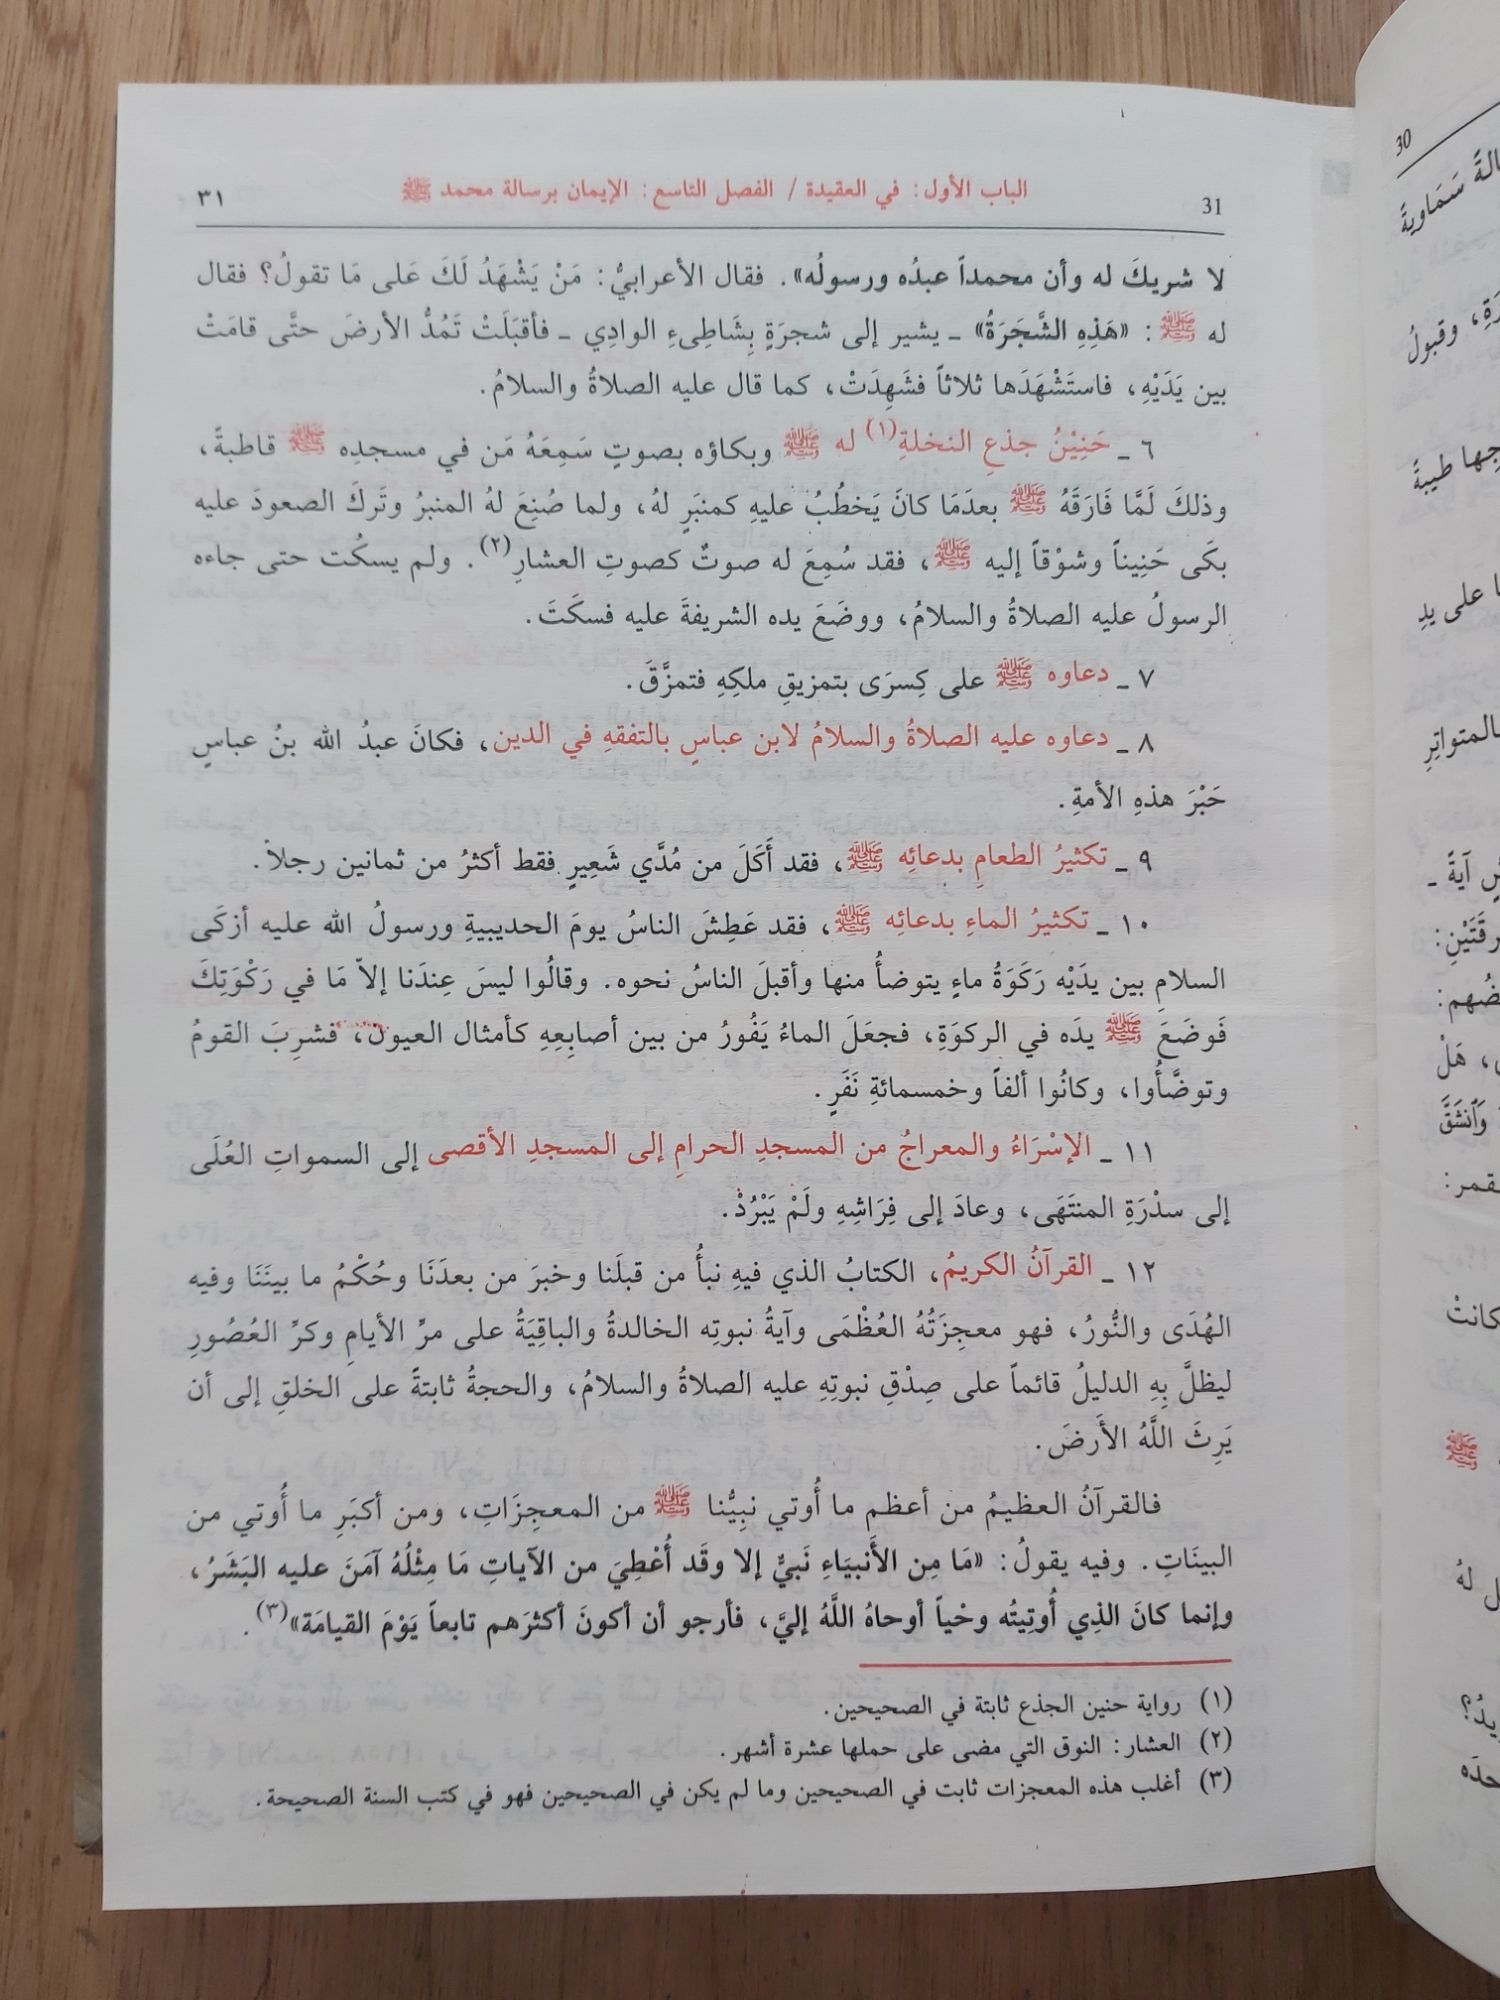 31 الباب الأول: في العقيدة / الفصل التاسع: الإيمان برسالة محمد ﷺ ٣١
لا شريكَ له وأن محمداً عبدُه ورسولُه». فقال الأعرابيُّ: مَنْ يَشْهَدُ لَكَ عَلى مَا تقولُ؟ فقال
له ﷺ: «هَذِهِ الشَّجَرَةُ» ـ يشير إلى شجرَةٍ بِشَاطِىءِ الوادِي ـ فأقبَلَتْ تَمُدُّ الأرضَ حتَّى قامَتْ
بين يَدَيْهِ، فاستَشْهَدَها ثلاثاً فشَهِدَتْ، كما قال عليه الصلاةُ والسلامُ.
٦ ـ حَنِيْنُ جذعِ النخلةِ(١) له ﷺ وبكاؤه بصوتٍ سَمِعَهُ مَن في مسجدِه ﷺ قاطبةً،
وذلكَ لَمَّا فَارَقَهُ ﷺ بعدَمَا كانَ يَخطُبُ عليهِ كمنبَرٍ لهُ، ولما صُنِعَ لهُ المنبرُ وتَركَ الصعودَ عليه
بكَى حَنِيناً وشوْقاً إليه ﷺ، فقد سُمِعَ له صوتٌ كصوتِ العشارِ(٢). ولم يسكُت حتى جاءه
الرسولُ عليه الصلاةُ والسلامُ، ووضَعَ يده الشريفةَ عليه فسكَتَ.
٧ ـ دعاوه ﷺ على كِسرَى بتمزيقِ ملكِهِ فتمزَّقَ.
٨ ـ دعاوه عليه الصلاةُ والسلامُ لابن عباسٍ بالتفقهِ في الدين، فكانَ عبدُ الله بنُ عباسٍ
حَبْرَ هذهِ الأمةِ.
٩ ـ تكثيرُ الطعامِ بدعائِه ﷺ، فقد أَكَلَ من مُدَّي شَعِيرٍ فقط أكثرُ من ثمانين رجلاً.
١٠ ـ تكثيرُ الماءِ بدعائِه ﷺ، فقد عَطِشَ الناسُ يومَ الحديبيةِ ورسولُ الله عليه أزكَى
السلامِ بين يدَيْه رَكَوَةُ ماءٍ يتوضأُ منها وأقبلَ الناسُ نحوه. وقالُوا ليسَ عِندَنا إلاّ مَا في رَكْوَتِكَ
فَوضَعَ ﷺ يدَه في الركوَةِ، فجعَلَ الماءُ يَفُورُ من بين أصابِعِهِ كأمثال العيون، فشرِبَ القومُ
وتوضَّأُوا، وكانُوا ألفاً وخمسمائةِ نَفَرٍ.
١١ ـ الإسْرَاءُ والمعراجُ من المسجدِ الحرامِ إلى المسجدِ الأقصى إلى السمواتِ العُلَى
إلى سدْرَةِ المنتَهَى، وعادَ إلى فِرَاشِهِ ولَمْ يَبْرُدْ.
١٢ ـ القرآنُ الكريمُ، الكتابُ الذي فيهِ نبأُ من قبلَنا وخبرَ من بعدَنَا وحُكْمُ ما بينَنَا وفيه
الهُدَى والنُّورُ، فهو معجِزَتُهُ العُظْمَى وآيةُ نبوتِه الخالدةُ والباقِيَةُ على مرِّ الأيامِ وكرِّ العُصُورِ
ليظلَّ بِهِ الدليلُ قائماً على صِدْقِ نبوتِهِ عليه الصلاةُ والسلامُ، والحجةُ ثابتةً على الخلقِ إلى أن
يَرِثَ اللَّهُ الأَرضَ.
فالقرآنُ العظيمُ من أعظم ما أُوتي نبِيُّنا ﷺ من المعجِزَاتِ، ومن أكبَرِ ما أُوتي من
البينَاتِ. وفيه يقولُ: «مَا مِن الأَنبيَاءِ نَبيٌّ إلا وقَد أُعْطِيَ من الآياتِ مَا مِثْلُهُ آمَنَ عليه البَشَرُ،
وإنما كانَ الذِي أُوتِيتُه وحْياً أوحاهُ اللَّهُ إليَّ، فأرجو أن أكونَ أكثرَهم تابعاً يَوْمَ القيامَة»(٣).
(١) رواية حنين الجذع ثابتة في الصحيحين.
(٢) العشار: النوق التي مضى على حملها عشرة أشهر.
(٣) أغلب هذه المعجزات ثابت في الصحيحين وما لم يكن في الصحيحين فهو في كتب السنة الصحيحة.
30
سَمَاويةً
وقبولُ
طيبةً
على يدِ
آيةً ـ
هَلْ
ﷺ